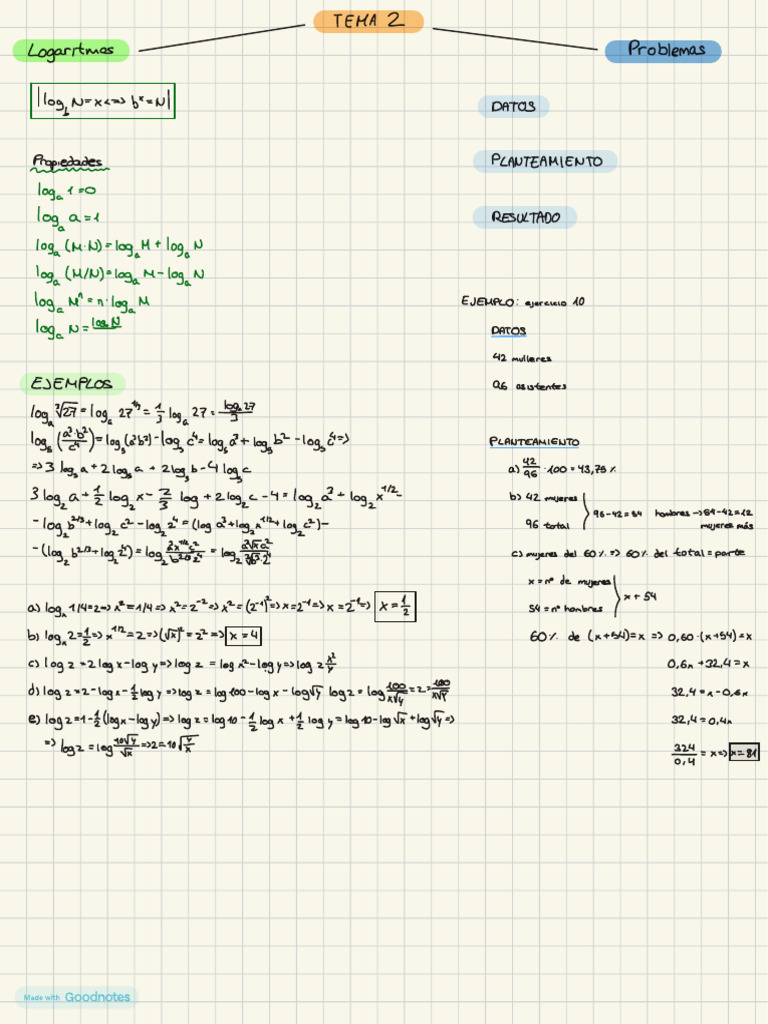 TEMA 2
Logaritmos
|log_b N=x<=>b^x=N|
Propiedades
log_a 1=0
log_a a=1
log_a (M·N)=log_a M+log_a N
log_a (M/N)=log_a M-log_a N
log_a M^n=n·log_a M
log_a N=log N/
EJEMPLOS
log_a ∛27=log_a 27^1/3=1/3 log_a 27=log_a 27/3
log_5 (a³·b²/c⁴)=log_5(a³b²)-log_5 c⁴=log_5 a³+log_5 b²-log_5 c⁴=>
=>3 log_5 a+2log_5 a+2log_5 b-4log_5 c
3log_2 a+1/2 log_2 x-2/3 log+2log_2 c-4=log_2 a³+log_2 x^1/2-
-log_2 b^2/3+log_2 c²-log_2 2⁴=(log a³+log_2 x^1/2+log_2 c²)-
-(log_2 b^2/3+log_2 2⁴)=log_2 a³x^1/2c²/b^2/3 2⁴=log_2 a³√x c²/∛b²·2⁴
a) log_x 1/4=2=>x²=1/4=>x²=2^-2=>x²=(2^-1)²=>x=2^-1=>x=2^-1=>x=1/2
b) log_x 2=1/2=>x^1/2=2=>(√x)²=2²=>x=4
c) log z=2logx-logy=>log z=logx²-logy=>log z x²/y
d) log z=2-logx-1/2 logy=>log z=log100-logx-log√y log z=log 100/x√y=z=100/x√y
e) log z=1-1/2(logx-logy)=>log z=log10-1/2 logx+1/2 logy=log10-log√x+log√y=>
=>log z=log 10√y/√x=>z=10√y/x
Problemas
DATOS
PLANTEAMIENTO
RESULTADO
EJEMPLO: ejercicio 10
DATOS
42 mulleres
96 asistentes
PLANTEAMIENTO
a) 42/96·100=43,75%
b) 42 mujeres
96 total
96-42=54
hombres->54-42=12
mujeres más
c) mujeres del 60%=>60% del total=parte
x=nº de mujeres
54=nº hombres
x+54
60% de (x+54)=x=>0,60·(x+54)=x
0,6x+32,4=x
32,4=x-0,6x
32,4=0,4x
324/0,4=x=>x=81
Made with Goodnotes